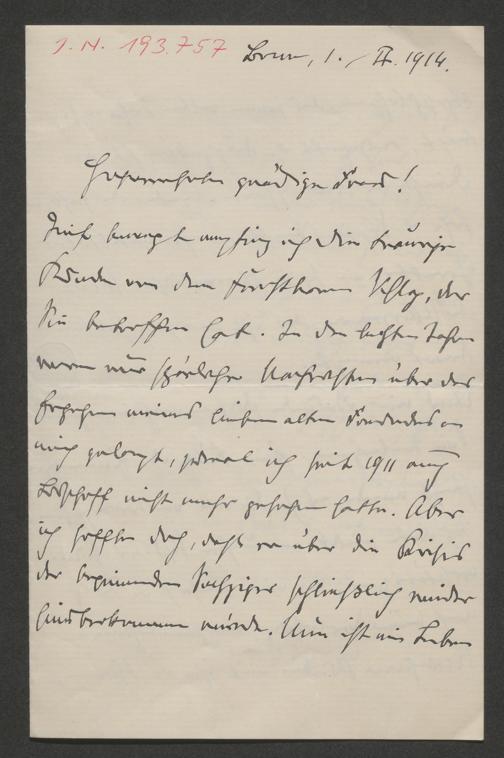 I. N. 193.757
Bonn, 1. / II. 1914.
Hochverehrte gnädige Frau!
Tief bewegt empfing ich die traurige
Kunde von dem furchtbaren Schlag, der
Sie betroffen hat. In den letzten Jahren
waren nur spärliche Nachrichten über das
Ergehen meines lieben alten Freundes an
mich gelangt, zumal ich seit 1911 auch
nicht mehr gesehen hatte. Aber
ich hoffte doch, daß er über die Krisis
der beginnenden Sechziger schließlich wieder
hinüberkommen würde. Nun ist ein Leben